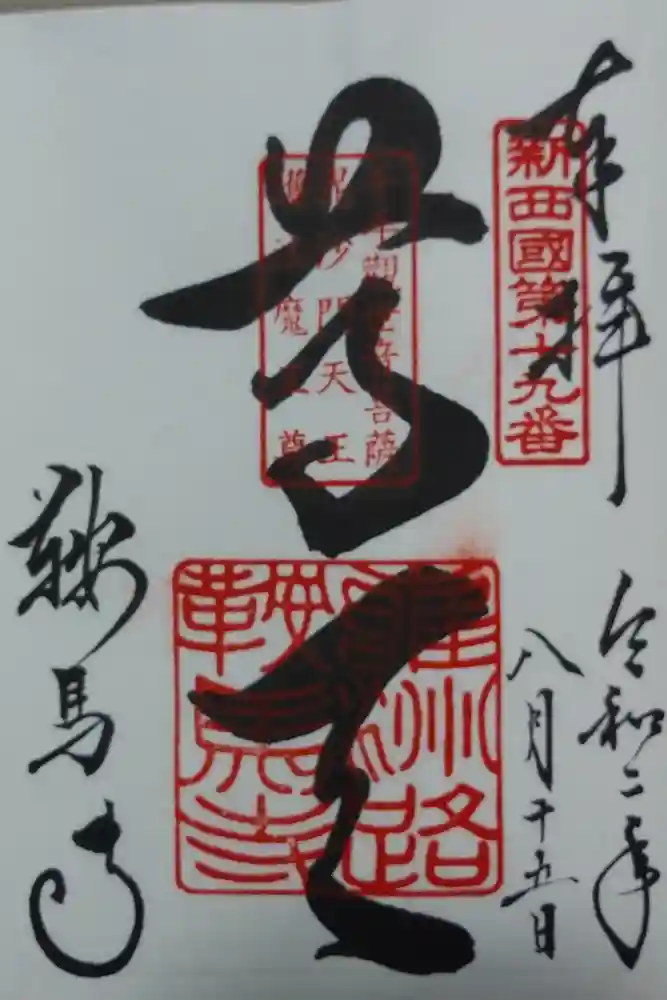 奉拝
新西國第十九番
令和二年
八月十五日
千手觀世音菩薩
毘沙門天王
護法魔王尊
尊天
雍州路
鞍馬寺
鞍馬寺